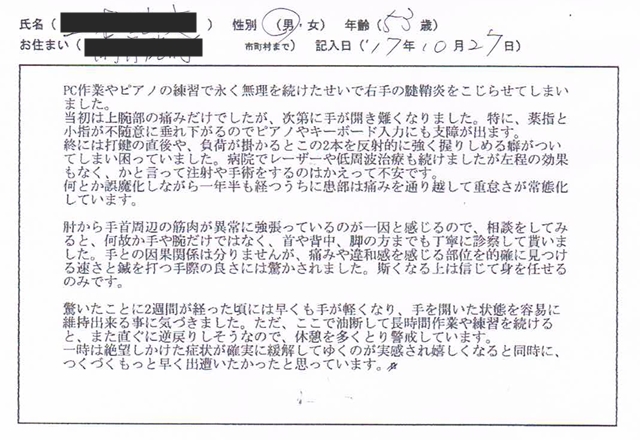 氏名( 性別 (男・女) 年齢(53歳)
お住まい( 市町村まで) 記入日('17年10月27日)
PC作業やピアノの練習で永く無理を続けたせいで右手の腱鞘炎をこじらせてしまい
ました。
当初は上腕部の痛みだけでしたが、次第に手が開き難くなりました。特に、薬指と
小指が不随意に垂れ下がるのでピアノやキーボード入力にも支障が出ます。
終には打鍵の直後や、負荷が掛かるとこの2本を反射的に強く握りしめる癖がつい
てしまい困っていました。病院でレーザーや低周波治療も続けましたが左程の効果
もなく、かと言って注射や手術をするのはかえって不安です。
何とか誤魔化しながら一年半も経つうちに患部は痛みを通り越して重怠さが常態化
しています。
肘から手首周辺の筋肉が異常に強張っているのが一因と感じるので、相談をしてみ
ると、何故か手や腕だけではなく、首や背中、脚の方までも丁寧に診察して貰いま
した。手との因果関係は分りませんが、痛みや違和感を感じる部位を的確に見つけ
る速さと鍼を打つ手際の良さには驚かされました。斯くなる上は信じて身を任せる
のみです。
驚いたことに2週間が経った頃には早くも手が軽くなり、手を開いた状態を容易に
維持出来る事に気づきました。ただ、ここで油断して長時間作業や練習を続ける
と、また直ぐに逆戻りしそうなので、休憩を多くとり警戒しています。
一時は絶望しかけた症状が確実に緩解してゆくのが実感され嬉しくなると同時に、
つくづくもっと早く出遭いたかったと思っています。